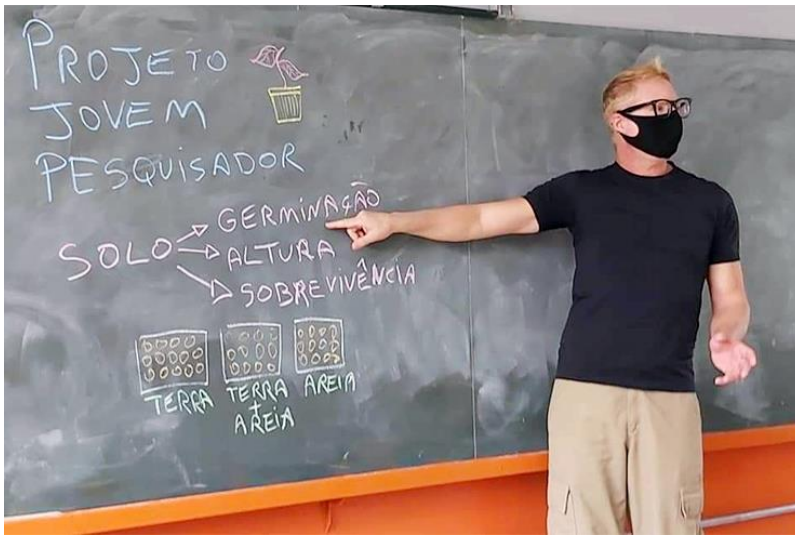 PROJETO
JOVEM
PESQUISADOR
SOLO
GERMINAÇÃO
ALTURA
SOBREVIVÊNCIA
TERRA
TERRA
+
AREIA
AREIA